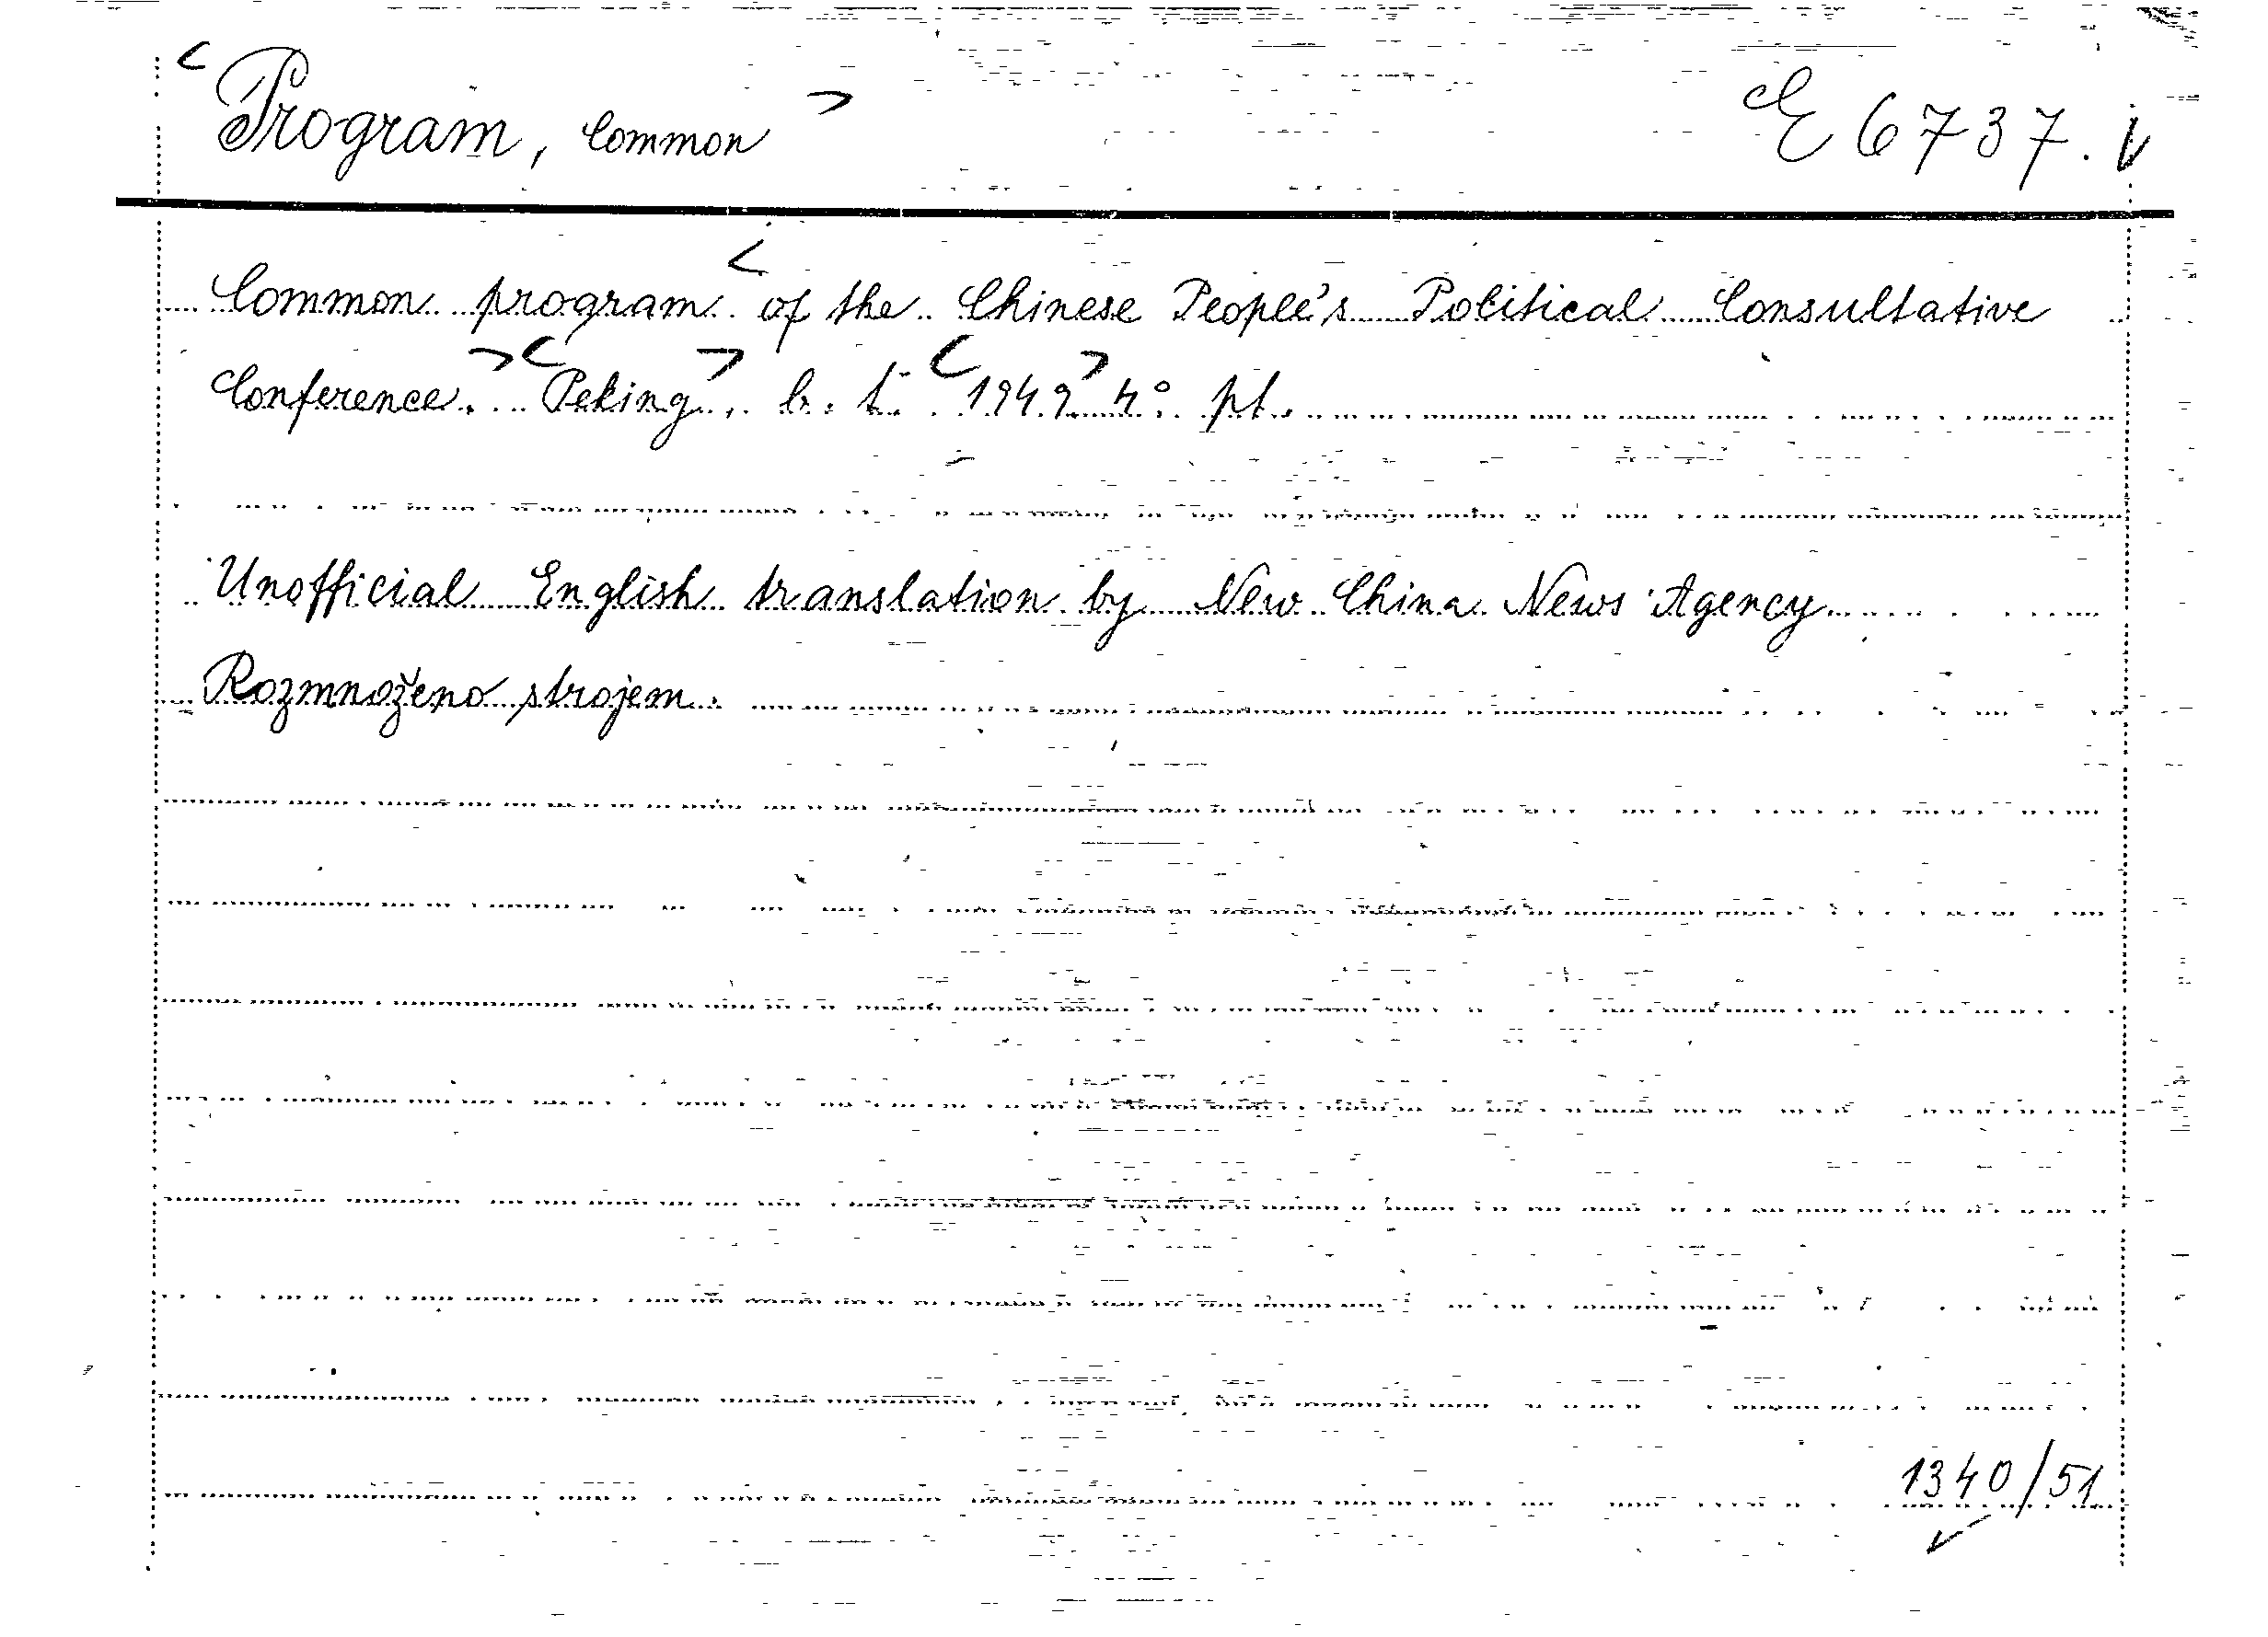 <Program, Common> E 6737.
Common program <of the Chinese People's Political Consultative
Conference.> <Peking>, b. t. <1949> 4° pl.
Unofficial English translation by New China News Agency
Rozmnoženo strojem.
1340/51